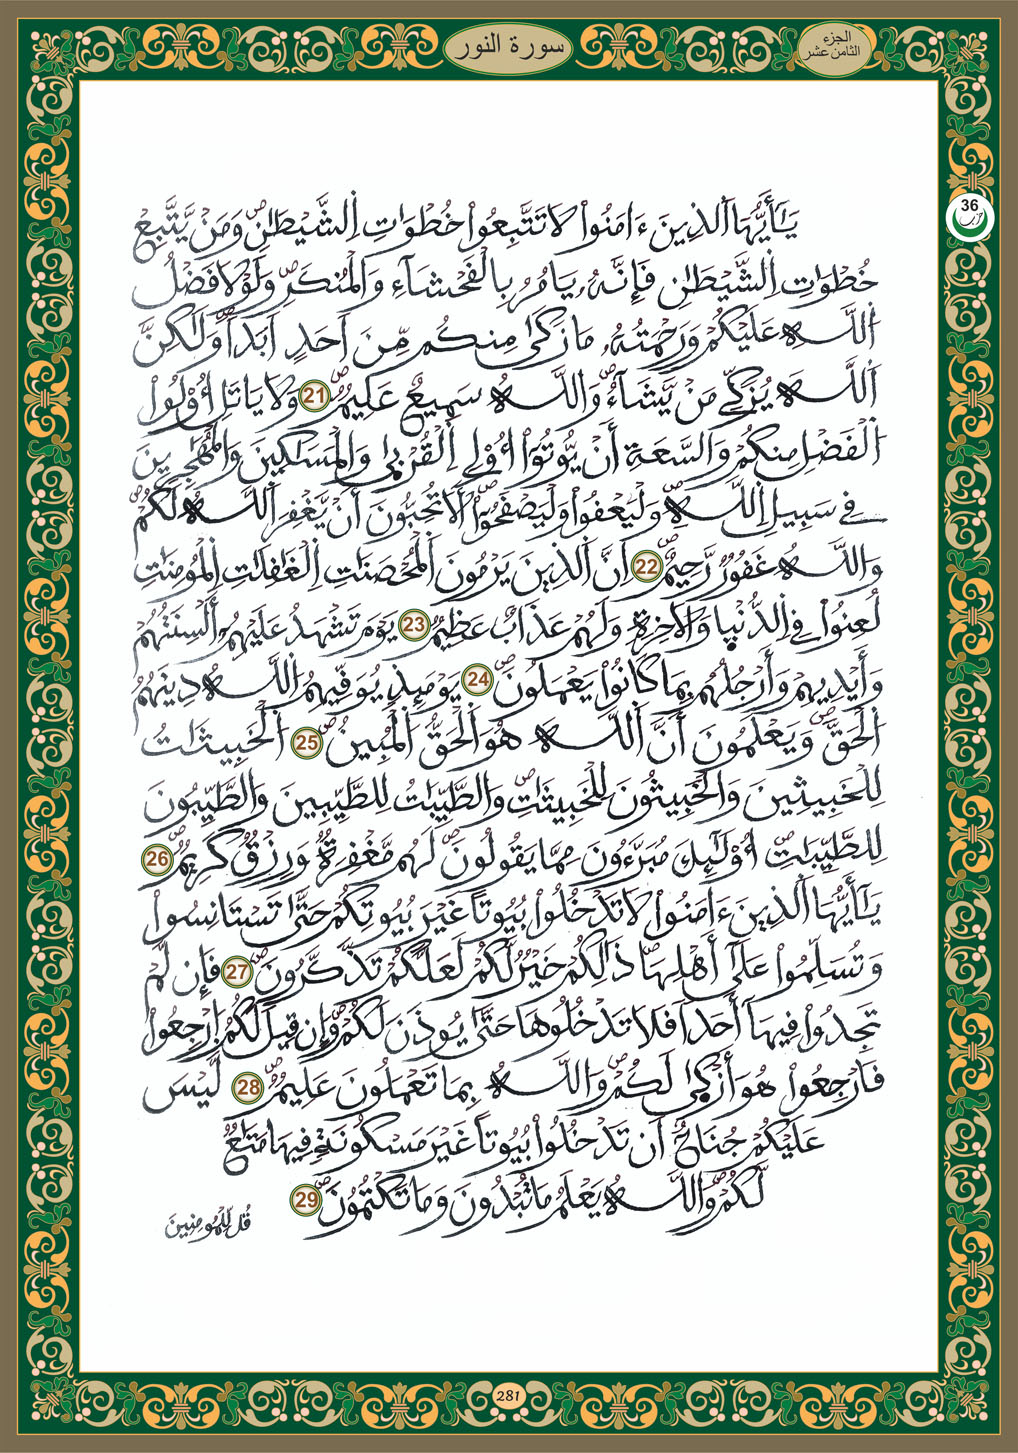 سورة النور
الجزء
الثامن عشر
36
حزب
يَٰٓأَيُّهَا اَ۬لذِينَ ءَامَنُواْ لَا تَتَّبِعُواْ خُطْوَٰتِ اِ۬لشَّيْطَٰنِۖ وَمَنْ يَّتَّبِعْ
خُطْوَٰتِ اِ۬لشَّيْطَٰنِ فَإِنَّهُۥ يَامُرُ بِالْفَحْشَآءِ وَالْمُنكَرِۖ وَلَوْلَا فَضْلُ
اُ۬للَّهِ عَلَيْكُمْ وَرَحْمَتُهُۥ مَا زَكَىٰ مِنكُم مِّنَ اَحَدٍ اَبَداٗۖ وَلَٰكِنَّ
اَ۬للَّهَ يُزَكِّے مَنْ يَّشَآءُۖ وَاللَّهُ سَمِيعٌ عَلِيمٌۖ 21 وَلَا يَاتَلِ أُوْلُواْ
اُ۬لْفَضْلِ مِنكُمْ وَالسَّعَةِ أَنْ يُّوتُوٓاْ أُوْلِے اِ۬لْقُرْب۪ىٰ وَالْمَسَٰكِينَ وَالْمُهَٰجِرِينَ
فِے سَبِيلِ اِ۬للَّهِۖ وَلْيَعْفُواْ وَلْيَصْفَحُوٓاْۖ أَلَا تُحِبُّونَ أَنْ يَّغْفِرَ اَ۬للَّهُ لَكُمْۖ
وَاللَّهُ غَفُورٞ رَّحِيمٌۖ 22 اِنَّ اَ۬لذِينَ يَرْمُونَ اَ۬لْمُحْصَنَٰتِ اِ۬لْغَٰفِلَٰتِ اِ۬لْمُومِنَٰتِ
لُعِنُواْ فِے اِ۬لدُّنْي۪ا وَالَاخِرَةِ وَلَهُمْ عَذَابٌ عَظِيمٞ 23 يَوْمَ تَشْهَدُ عَلَيْهِمُۥٓ أَلْسِنَتُهُمْ
وَأَيْدِيهِمْ وَأَرْجُلُهُم بِمَا كَانُواْ يَعْمَلُونَۖ 24 يَوْمَئِذٖ يُوَفِّيهِمُ اُ۬للَّهُ دِينَهُمُ
اُ۬لْحَقَّۖ وَيَعْلَمُونَ أَنَّ اَ۬للَّهَ هُوَ اَ۬لْحَقُّ اُ۬لْمُبِينُۖ 25 اُ۬لْخَبِيثَٰتُ
لِلْخَبِيثِينَ وَالْخَبِيثُونَ لِلْخَبِيثَٰتِۖ وَالطَّيِّبَٰتُ لِلطَّيِّبِينَ وَالطَّيِّبُونَ
لِلطَّيِّبَٰتِۖ أُوْلَٰٓئِكَ مُبَرَّءُونَ مِمَّا يَقُولُونَۖ لَهُم مَّغْفِرَةٞ وَرِزْقٞ كَرِيمٞۖ 26
يَٰٓأَيُّهَا اَ۬لذِينَ ءَامَنُواْ لَا تَدْخُلُواْ بُيُوتاً غَيْرَ بُيُوتِكُمْ حَتَّىٰ تَسْتَانِسُواْ
وَتُسَلِّمُواْ عَلَىٰٓ أَهْلِهَاۖ ذَٰلِكُمْ خَيْرٞ لَّكُمْ لَعَلَّكُمْ تَذَّكَّرُونَۖ 27 فَإِن لَّمْ
تَجِدُواْ فِيهَآ أَحَداٗ فَلَا تَدْخُلُوهَا حَتَّىٰ يُوذَنَ لَكُمْۖ وَإِن قِيلَ لَكُمُ اُ۪رْجِعُواْ
فَارْجِعُواْ هُوَ أَزْك۪ىٰ لَكُمْۖ وَاللَّهُ بِمَا تَعْمَلُونَ عَلِيمٞۖ 28 لَّيْسَ
عَلَيْكُمْ جُنَاحٌ اَن تَدْخُلُواْ بُيُوتاً غَيْرَ مَسْكُونَةٖ فِيهَا مَتَٰعٞ
لَّكُمْۖ وَاللَّهُ يَعْلَمُ مَا تُبْدُونَ وَمَا تَكْتُمُونَۖ 29
قُل لِّلْمُومِنِينَ
281